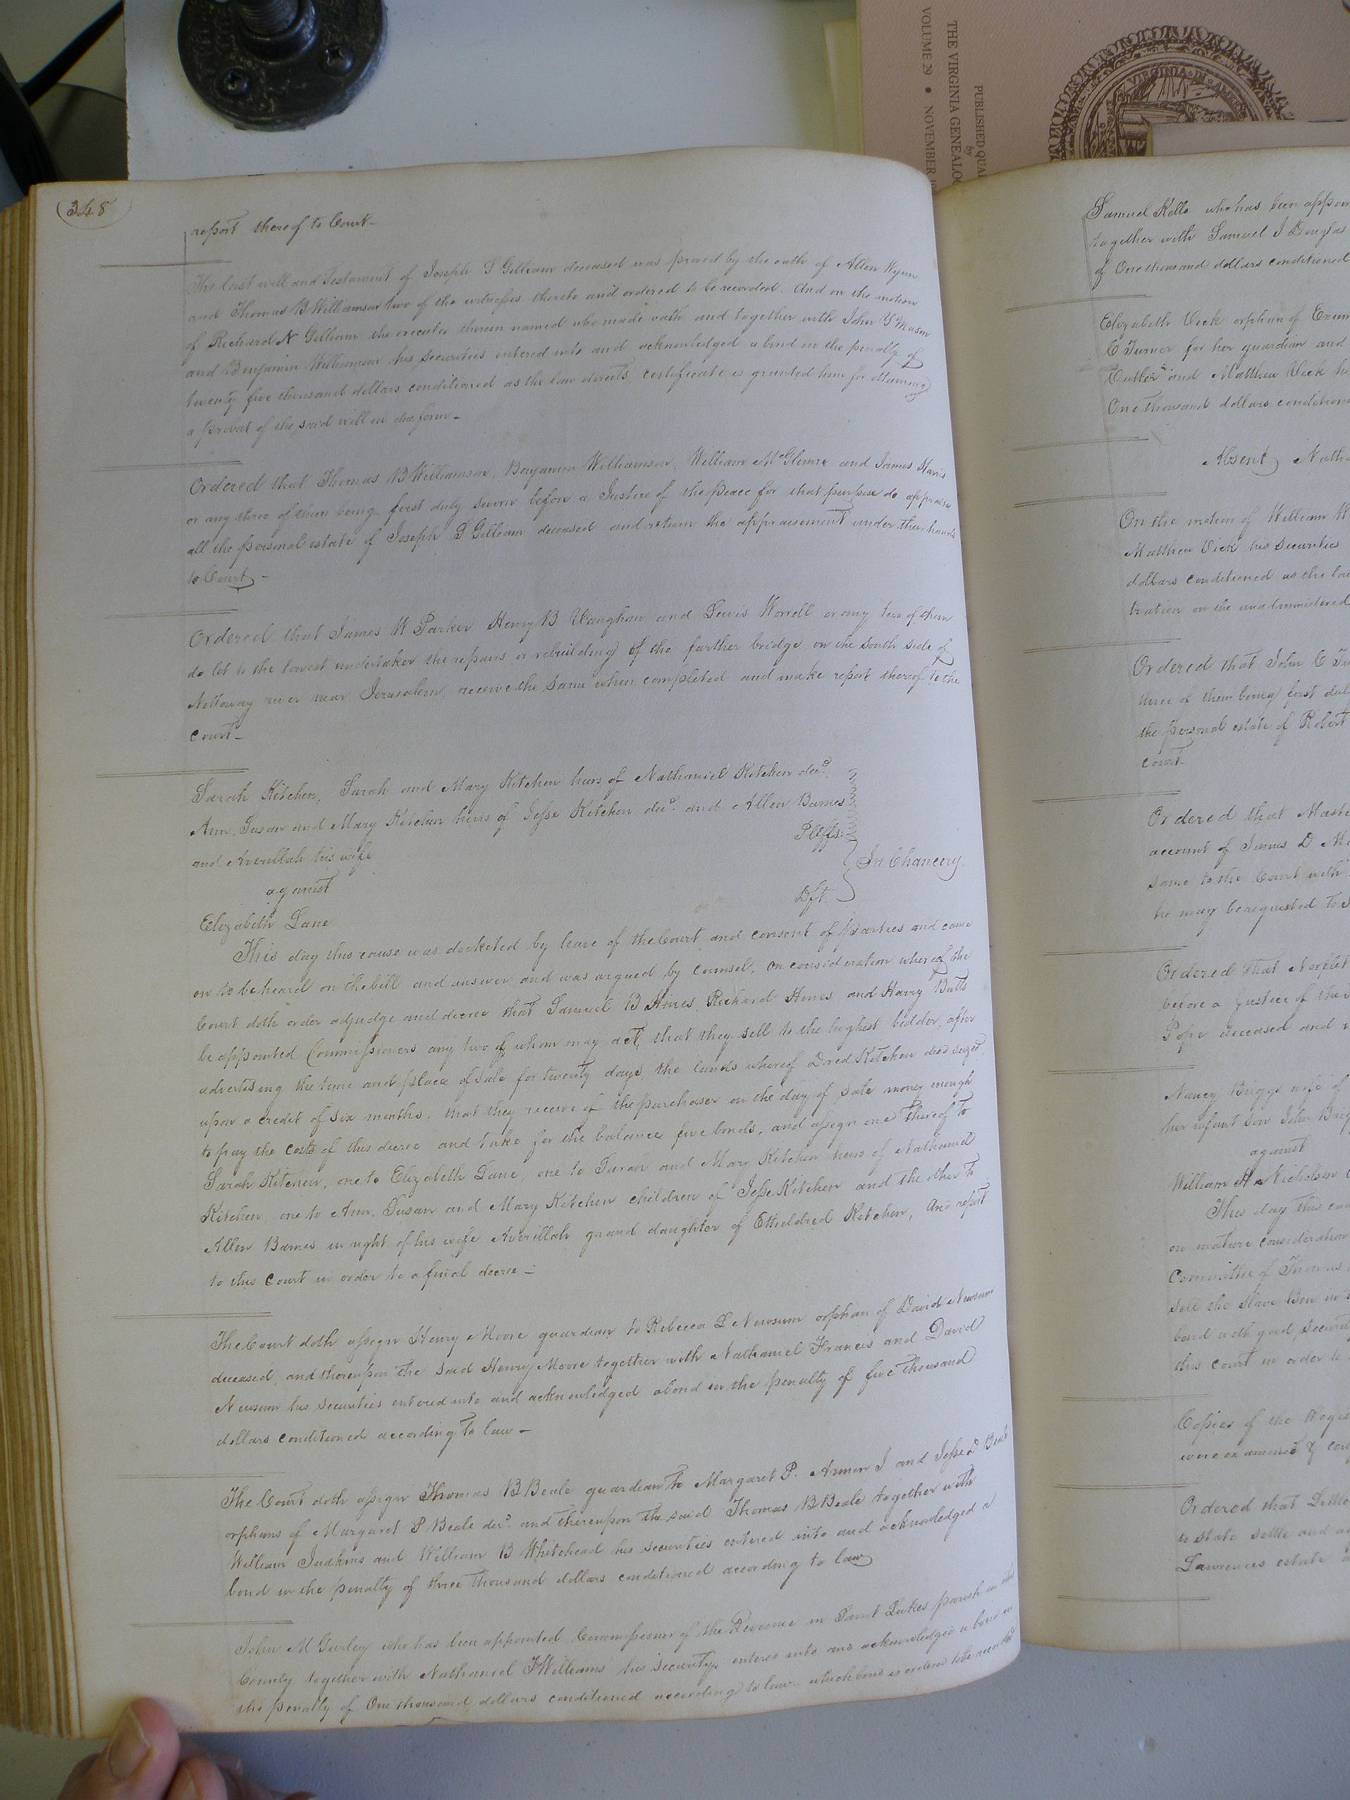 PUBLISHED QUA
by
THE VIRGINIA GENEALOG
VOLUME 29 • NOVEMBER
VIRGINIA
348
report thereof to Court-
The last will and Testament of Joseph S Gilliam deceased was proved by the oath of Allen Wynn
and Thomas B Williamson two of the witnesses thereto and ordered to be recorded. And on the motion
of Richard N Gilliam the executor therein named who made oath and together with John Y Mason
and Benjamin Williamson his securities entered into and acknowledged a bond in the penalty of
twenty five thousand dollars conditioned as the law directs certificate is granted him for obtaining
a probat of the said will in due form-
Ordered that Thomas B Williamson, Benjamin Williamson, William McGlemre and James Harris
or any three of them being first duly sworn before a Justice of the peace for that purpose do appraise
all the personal estate of Joseph S Gilliam deceased and return the appraisement under their hands
to Court-
Ordered that James W Parker Henry B Vaughan and Lewis Worrell or any two of them
do let to the lowest undertaker the repairs or rebuilding of the farther bridge on the south side of
Nottoway river near Jerusalem, receive the same when completed and make report thereof to the
Court-
Sarah Kitchen, Sarah and Mary Kitchen heirs of Nathaniel Kitchen decd.
Ann, Susan and Mary Kitchen heirs of Jesse Kitchen decd. and Allen Barnes
and Averillah his wife Plffs.
against In Chancery
Elizabeth Lane Dft.
This day this cause was docketed by leave of the Court, and consent of parties and came
on to be heard on the bill and answer and was argued by counsel, on consideration whereof the
Court doth order adjudge and decree that Samuel B Hines, Richard Hines and Harry Butts
be appointed Commissioners any two of whom may act, that they sell to the highest bidder, after
advertising the time and place of sale for twenty days the lands whereof Dred Kitchen died seized,
upon a credit of six months, that they receive of the purchaser on the day of sale money enough
to pay the costs of this decree and take for the balance five bonds, and assign one thereof to
Sarah Kitchen, one to Elizabeth Lane, one to Sarah and Mary Kitchen heirs of Nathaniel
Kitchen, one to Ann, Susan and Mary Kitchen children of Jesse Kitchen and the other to
Allen Barnes in right of his wife Averillah grand daughter of Etheldred Kitchen, And report
to this Court in order to a final decree-
The Court doth assign Henry Moore guardian to Rebecca L Newsum orphan of David Newsum
deceased, and thereupon the said Henry Moore together with Nathaniel Francis and David
Newsum his securities entered into and acknowledged a bond in the penalty of five thousand
dollars conditioned according to law-
The Court doth assign Thomas B Beale guardian to Margaret P. Armin J and Jesse D Beale
orphans of Margaret P Beale decd. and thereupon the said Thomas B Beale together with
William Judkins and William B Whitehead his securities entered into and acknowledged a
bond in the penalty of three thousand dollars conditioned according to law
John M Gurley who has been appointed Commissioner of the Revenue in Saint Lukes parish in this
County together with Nathaniel T Williams his security entered into and acknowledged a bond in
the penalty of One thousand dollars conditioned according to law which bond is ordered to be recorded
Samuel Kello who has been appoin
together with Samuel J Douglas
of One thousand dollars conditioned
Elizabeth Vick orphan of
C Turner for her guardian and
and Matthew Vick
One thousand dollars condition
Absent Nath
On the motion of William W
Matthew Vick his securities
dollars conditioned as the law
tration on the unadministered
Ordered that John C
three of them being first dul
the personal estate of Robert
Court
Ordered that Maste
account of James D
same to the Court with
he may be requested to
Ordered that Norfleet
before a Justice of the
Pope deceased and
Nancy Briggs wife of
her infant son John Brig
against
William H Nicholson
This day this cau
on mature consideration
Committee of Thomas
sell the slave Ben
bond with good securit
this court in order to
Copies of the Regis
were examined &
Ordered that
to state settle and
Lawrences estate